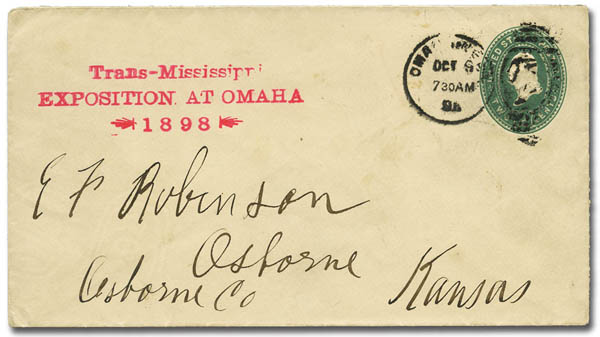 Trans-Mississippi
EXPOSITION AT OMAHA
1898
OCT 6
730AM
98
E F Robinson
Osborne
Osborne Co
Kansas